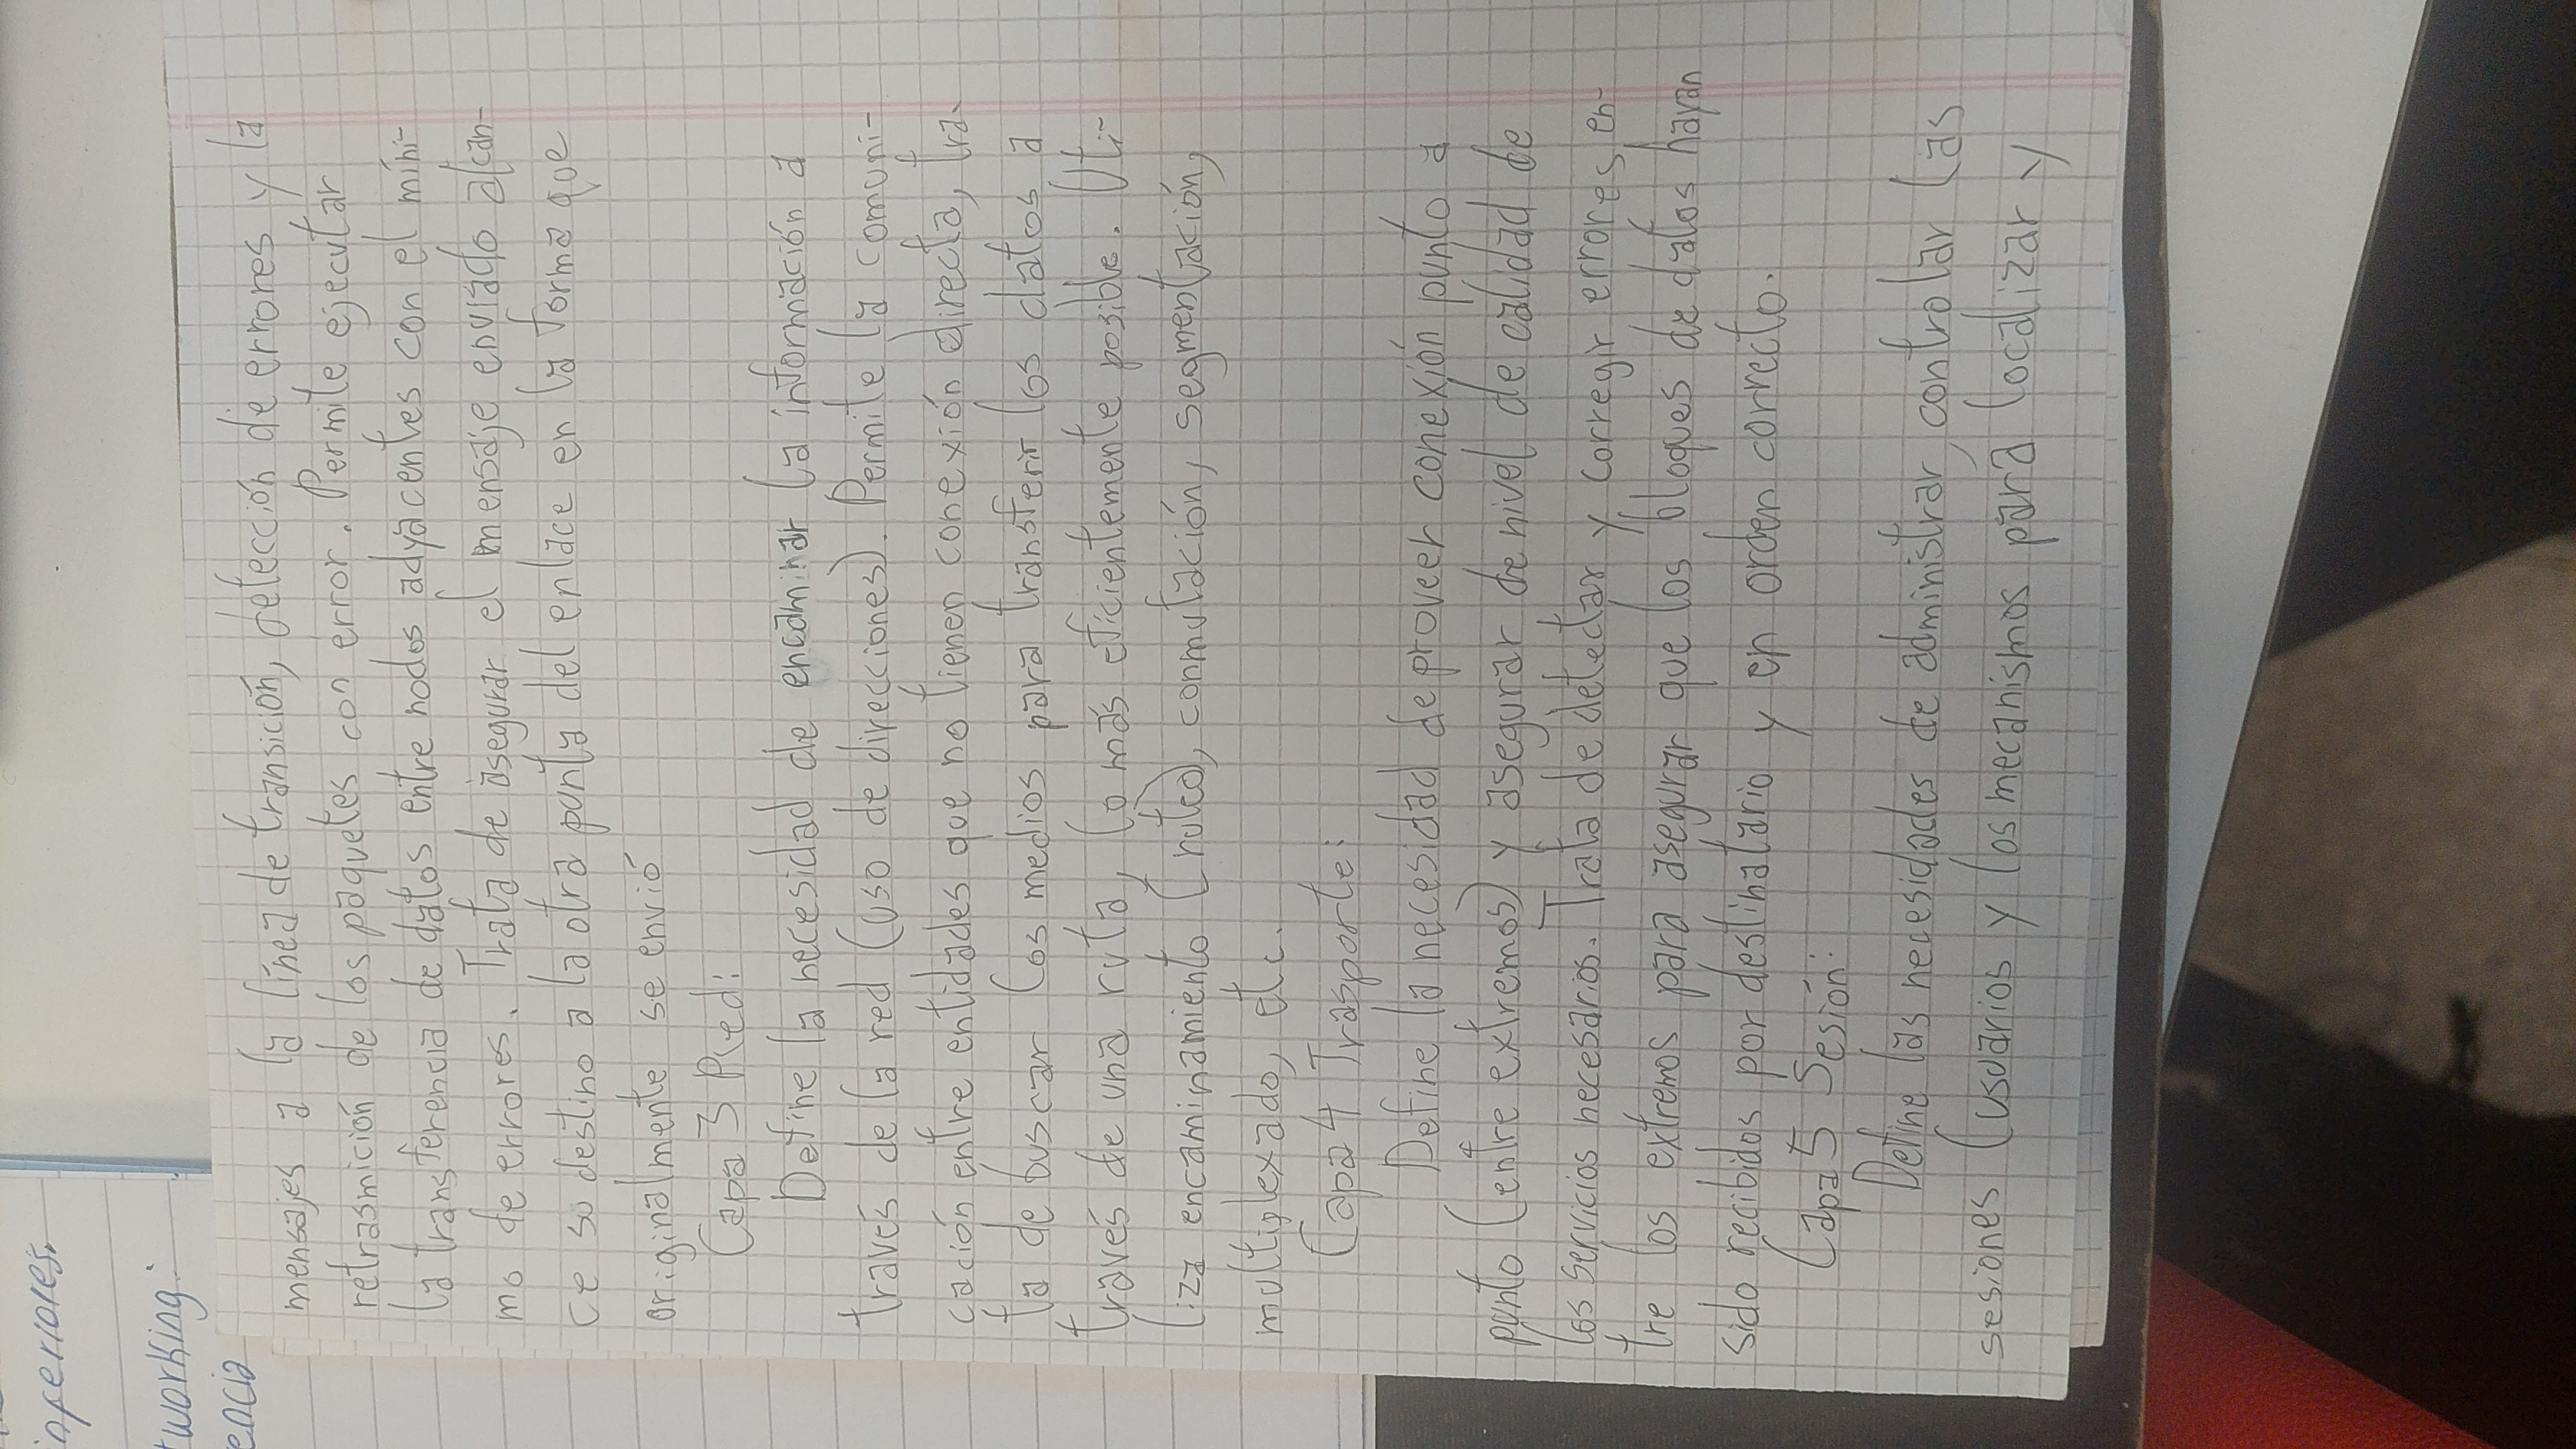 inferiores.
tworking:
encia
mensajes a la línea de transición, detección de errores y la
retrasmición de los paquetes con error. Permite ejecutar
la transferencia de datos entre nodos adyacentes con el míni-
mo de errores. Trata de asegurar el mensaje enviado alcan-
ce su destino a la otra punta del enlace en la forma que
originalmente se envió
Capa 3 Red:
Define la necesidad de encaminar la información a
través de la red (uso de direcciones). Permite la comuni-
cación entre entidades que no tienen conexión directa, tra-
ta de buscar los medios para transferir los datos a
través de una ruta, lo más eficientemente posible. Uti-
liza encaminamiento (ruteo), conmutación, segmentación,
multiplexado, etc.
Capa 4 Trasporte:
Define la necesidad de proveer conexión punto a
punto (entre extremos) y asegurar de nivel de calidad de
los servicios necesarios. Trata de detectar y corregir errores en-
tre los extremos para asegurar que los bloques de datos hayan
sido recibidos por destinatario y en orden correcto.
Capa 5 Sesión:
Define las necesidades de administrar, controlar las
sesiones (usuarios y los mecanismos para localizar y